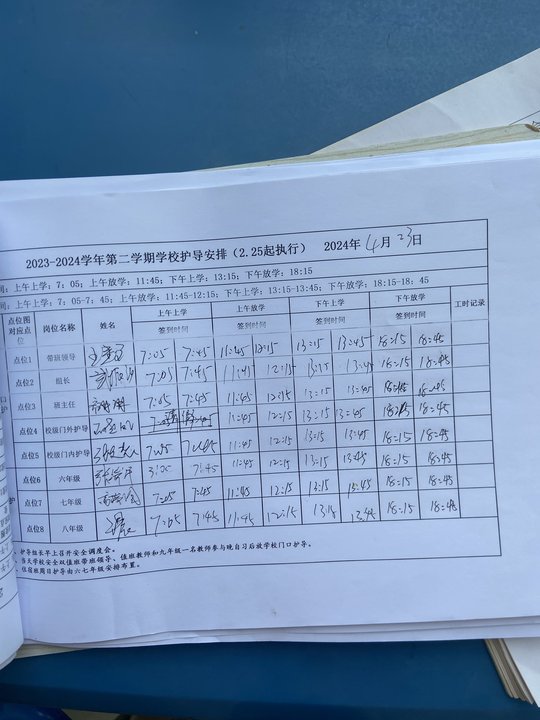 2023-2024学年第二学期学校护导安排（2.25起执行） 2024年4月23日
间：上午上学：7：05；上午放学：11:45；下午上学：13:15；下午放学：18:15
间：上午上学：7：05-7：45；上午放学：11:45-12:15；下午上学：13:15-13:45；下午放学：18:15-18：45
点位图对应点位 岗位名称 姓名 上午上学 上午放学 下午上学 下午放学 工时记录
签到时间 签到时间 签到时间 签到时间
点位1 带班领导 7:05 7:45 11:45 12:15 13:15 13:45 18:15 18:45
点位2 组长 7:05 7:45 11:45 12:15 13:15 13:45 18:15 18:45
点位3 班主任 7:05 7:45 11:45 12:15 13:15 13:45
点位4 校级门外护导 11:45 12:15 13:15 13:45 18:45
点位5 校级门内护导 11:45 12:15 13:15 13:45 18:15 18:45
点位6 六年级 7:45 11:45 12:15 13:15 13:45 18:15 18:45
点位7 七年级 7:05 7:45 11:45 12:15 13:15 13:45 18:15 18:45
点位8 八年级 7:05 7:45 11:45 12:15 13:15 13:45 18:15 18:45
、护导组长早上召开安全调度会。
、当天学校安全双值班带班领导、值班教师和九年级一名教师参与晚自习后放学校门口护导。
、住宿班周日护导由六七年级安排布置。